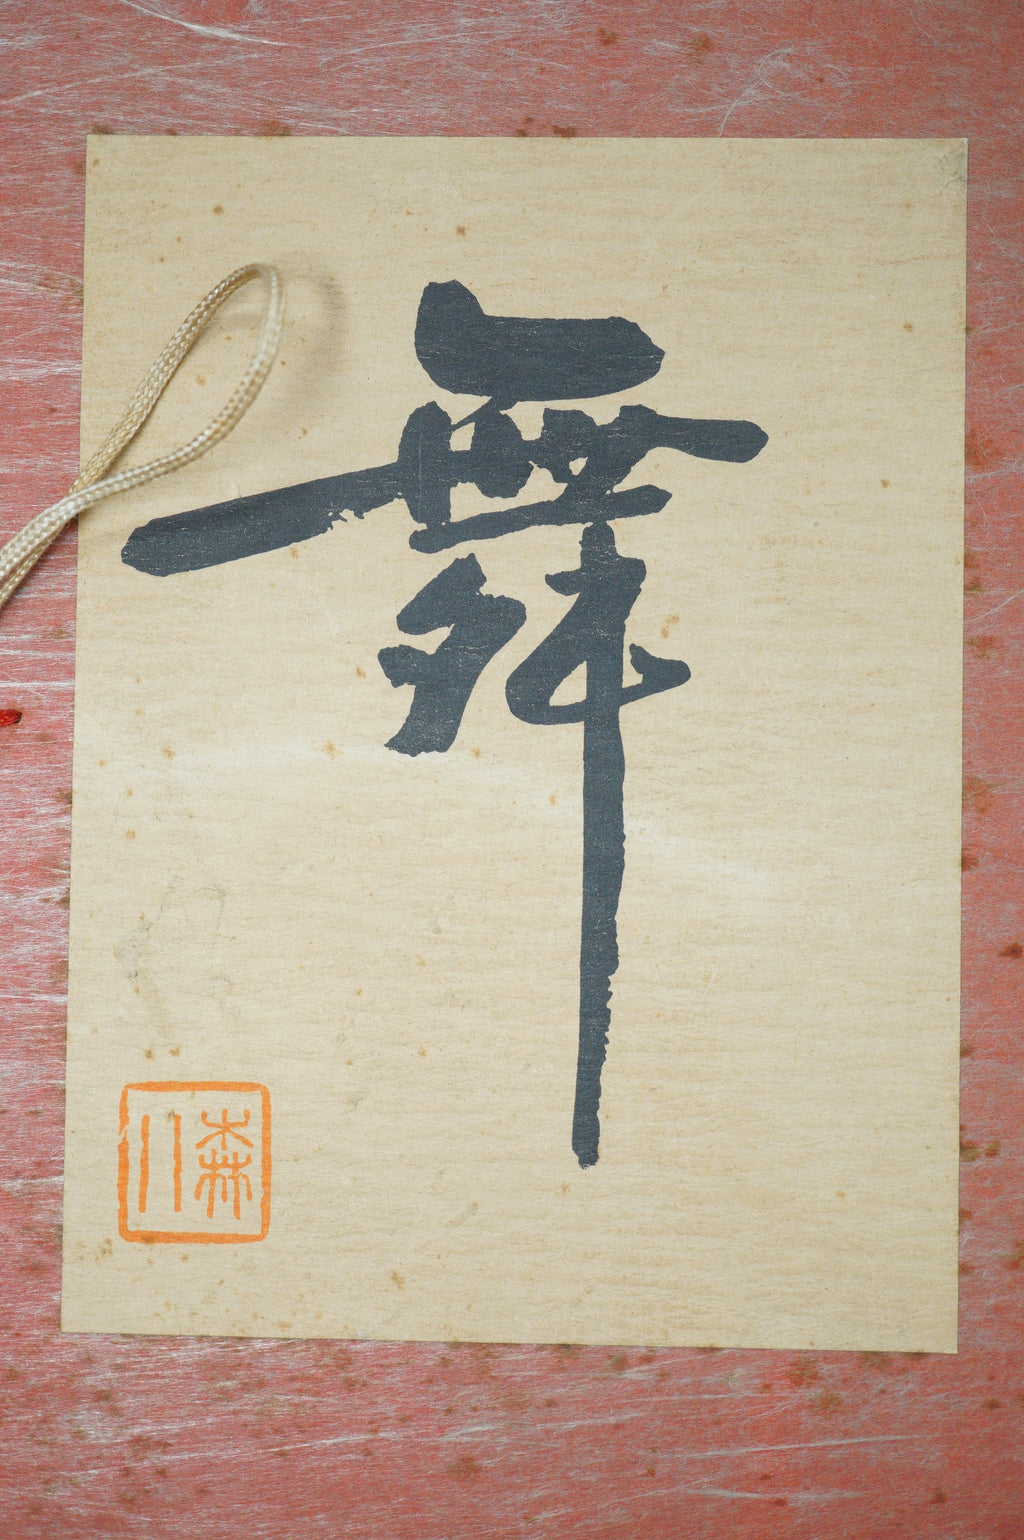 舞
森川